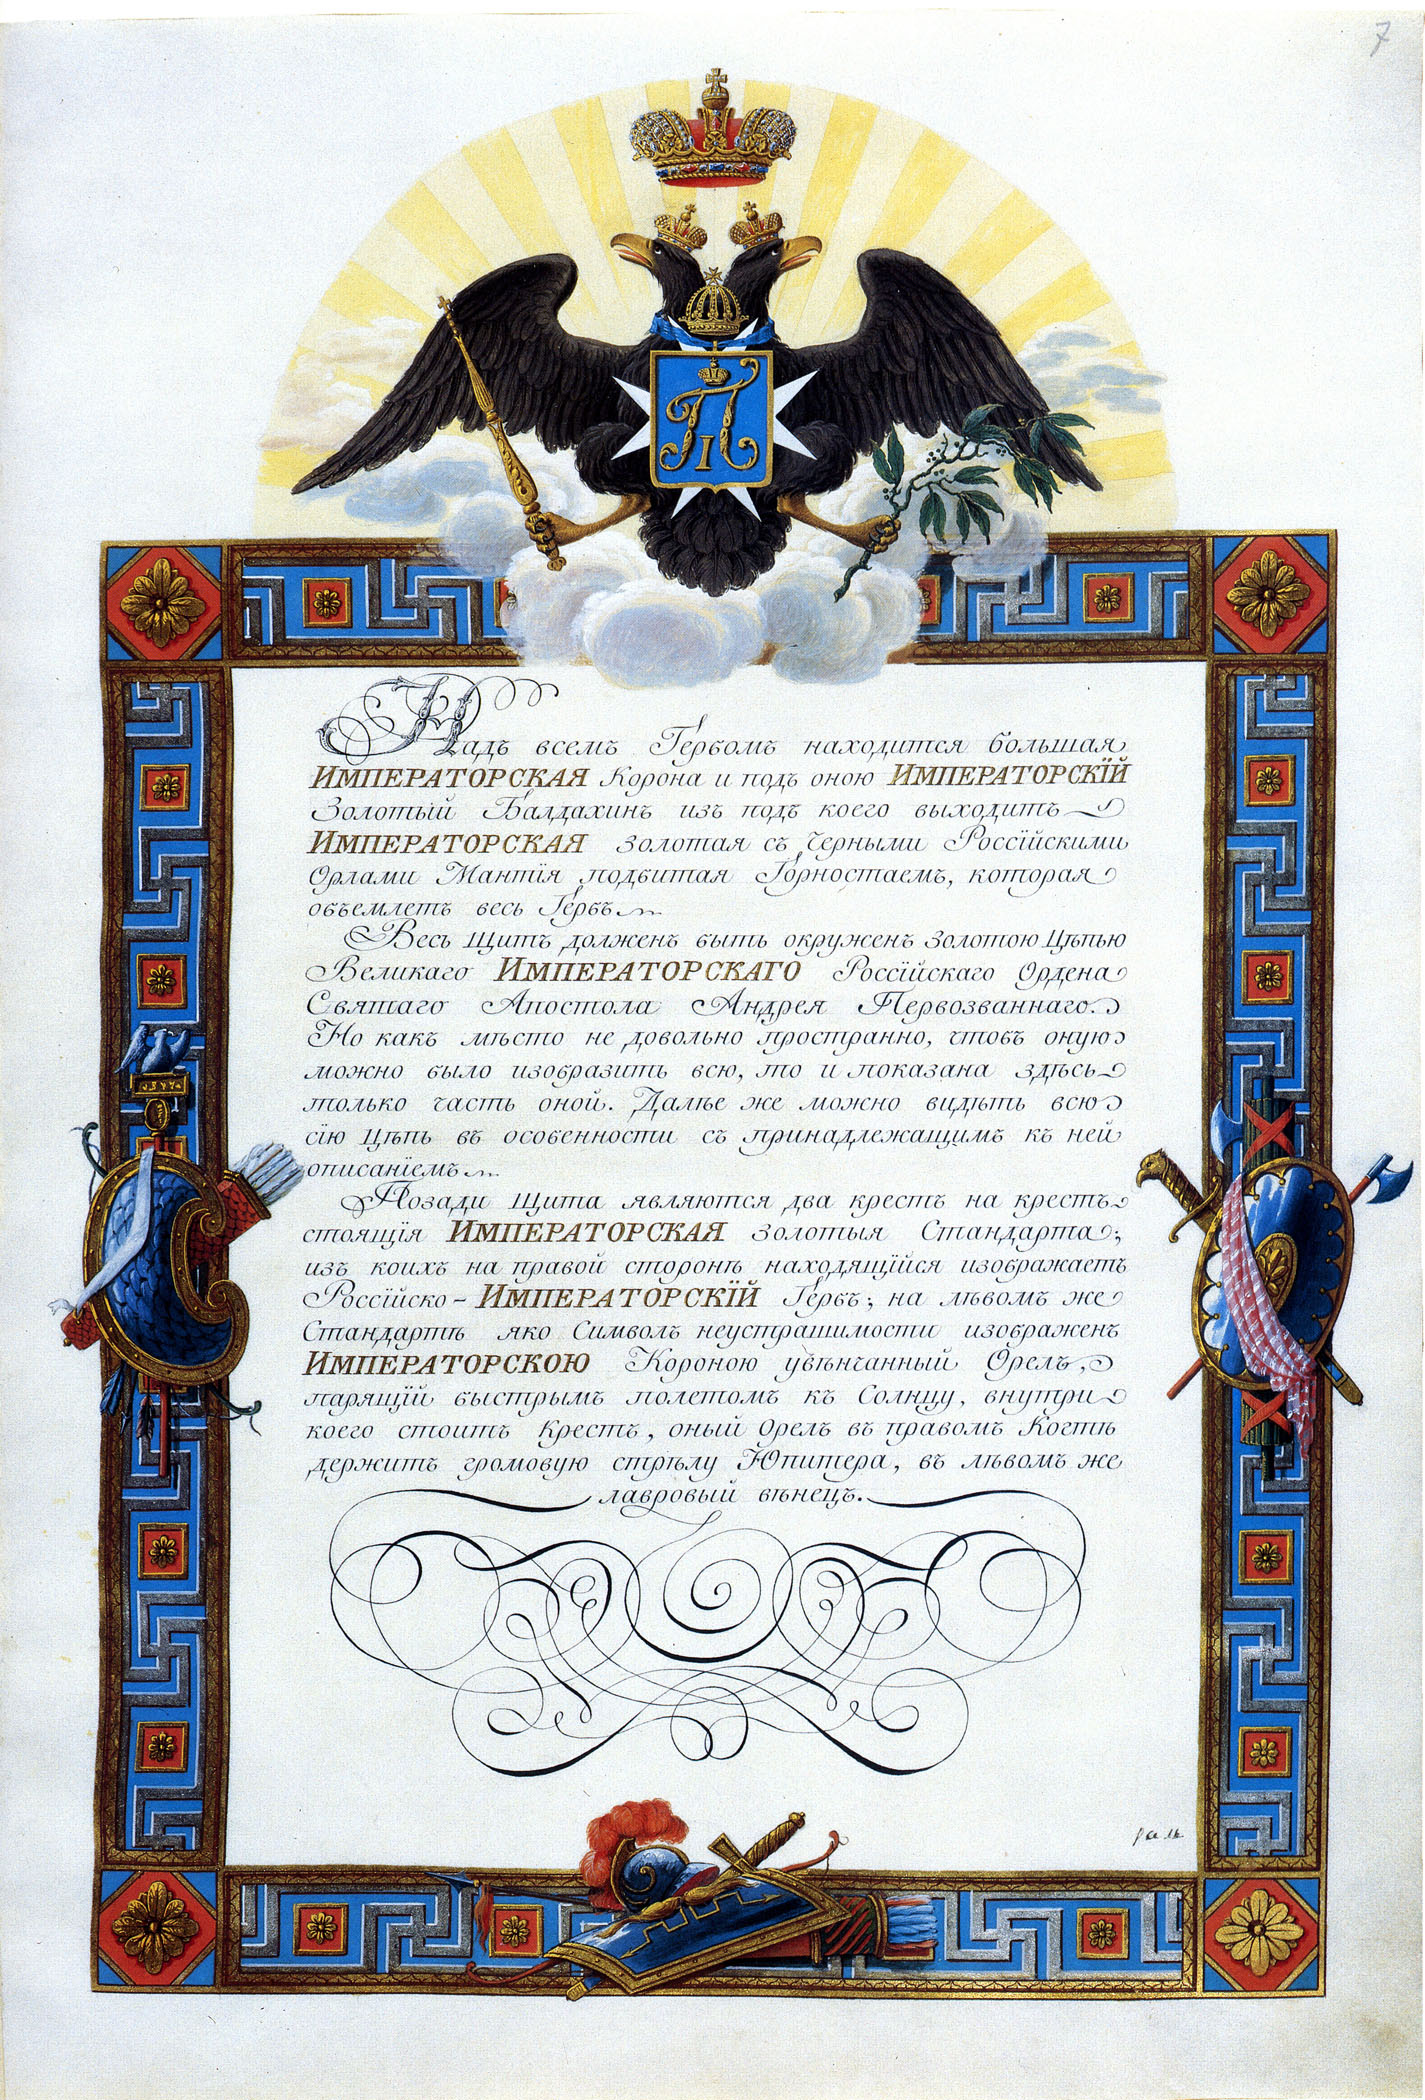 7
П I
Надъ всемъ Гербомъ находится большая
ИМПЕРАТОРСКАЯ Корона и подъ оною ИМПЕРАТОРСКІЙ
Золотый Балдахинъ изъ подъ коего выходитъ
ИМПЕРАТОРСКАЯ золотая съ Черными Россійскими
Орлами Мантія подбитая Горностаемъ, которая
объемлетъ весь Гербъ.
Весь Щитъ долженъ быть окруженъ Золотою Цѣпью
Великаго ИМПЕРАТОРСКАГО Россійскаго Ордена
Святаго Апостола Андрея Первозваннаго.
Но какъ мѣсто не довольно пространно, чтобъ оную
можно было изобразить всю, то и показана здѣсь
только часть оной. Далѣе же можно видѣть всю
сію Цѣпь въ особенности съ принадлежащимъ къ ней
описаніемъ.
Позади Щита являются два крестъ на крестъ
стоящія ИМПЕРАТОРСКАЯ золотыя Стандарта;
изъ коихъ на правой сторонѣ находящійся изображаетъ
Россійско-ИМПЕРАТОРСКІЙ Гербъ; на лѣвомъ же
Стандартѣ яко Символъ неустрашимости изображенъ
ИМПЕРАТОРСКОЮ Короною увѣнчанный Орелъ,
парящій быстрымъ полетомъ къ Солнцу, внутри
коего стоитъ Крестъ, оный Орелъ въ правомъ Когтѣ
держитъ громовую стрѣлу Юпитера, въ лѣвомъ же
лавровый вѣнецъ.